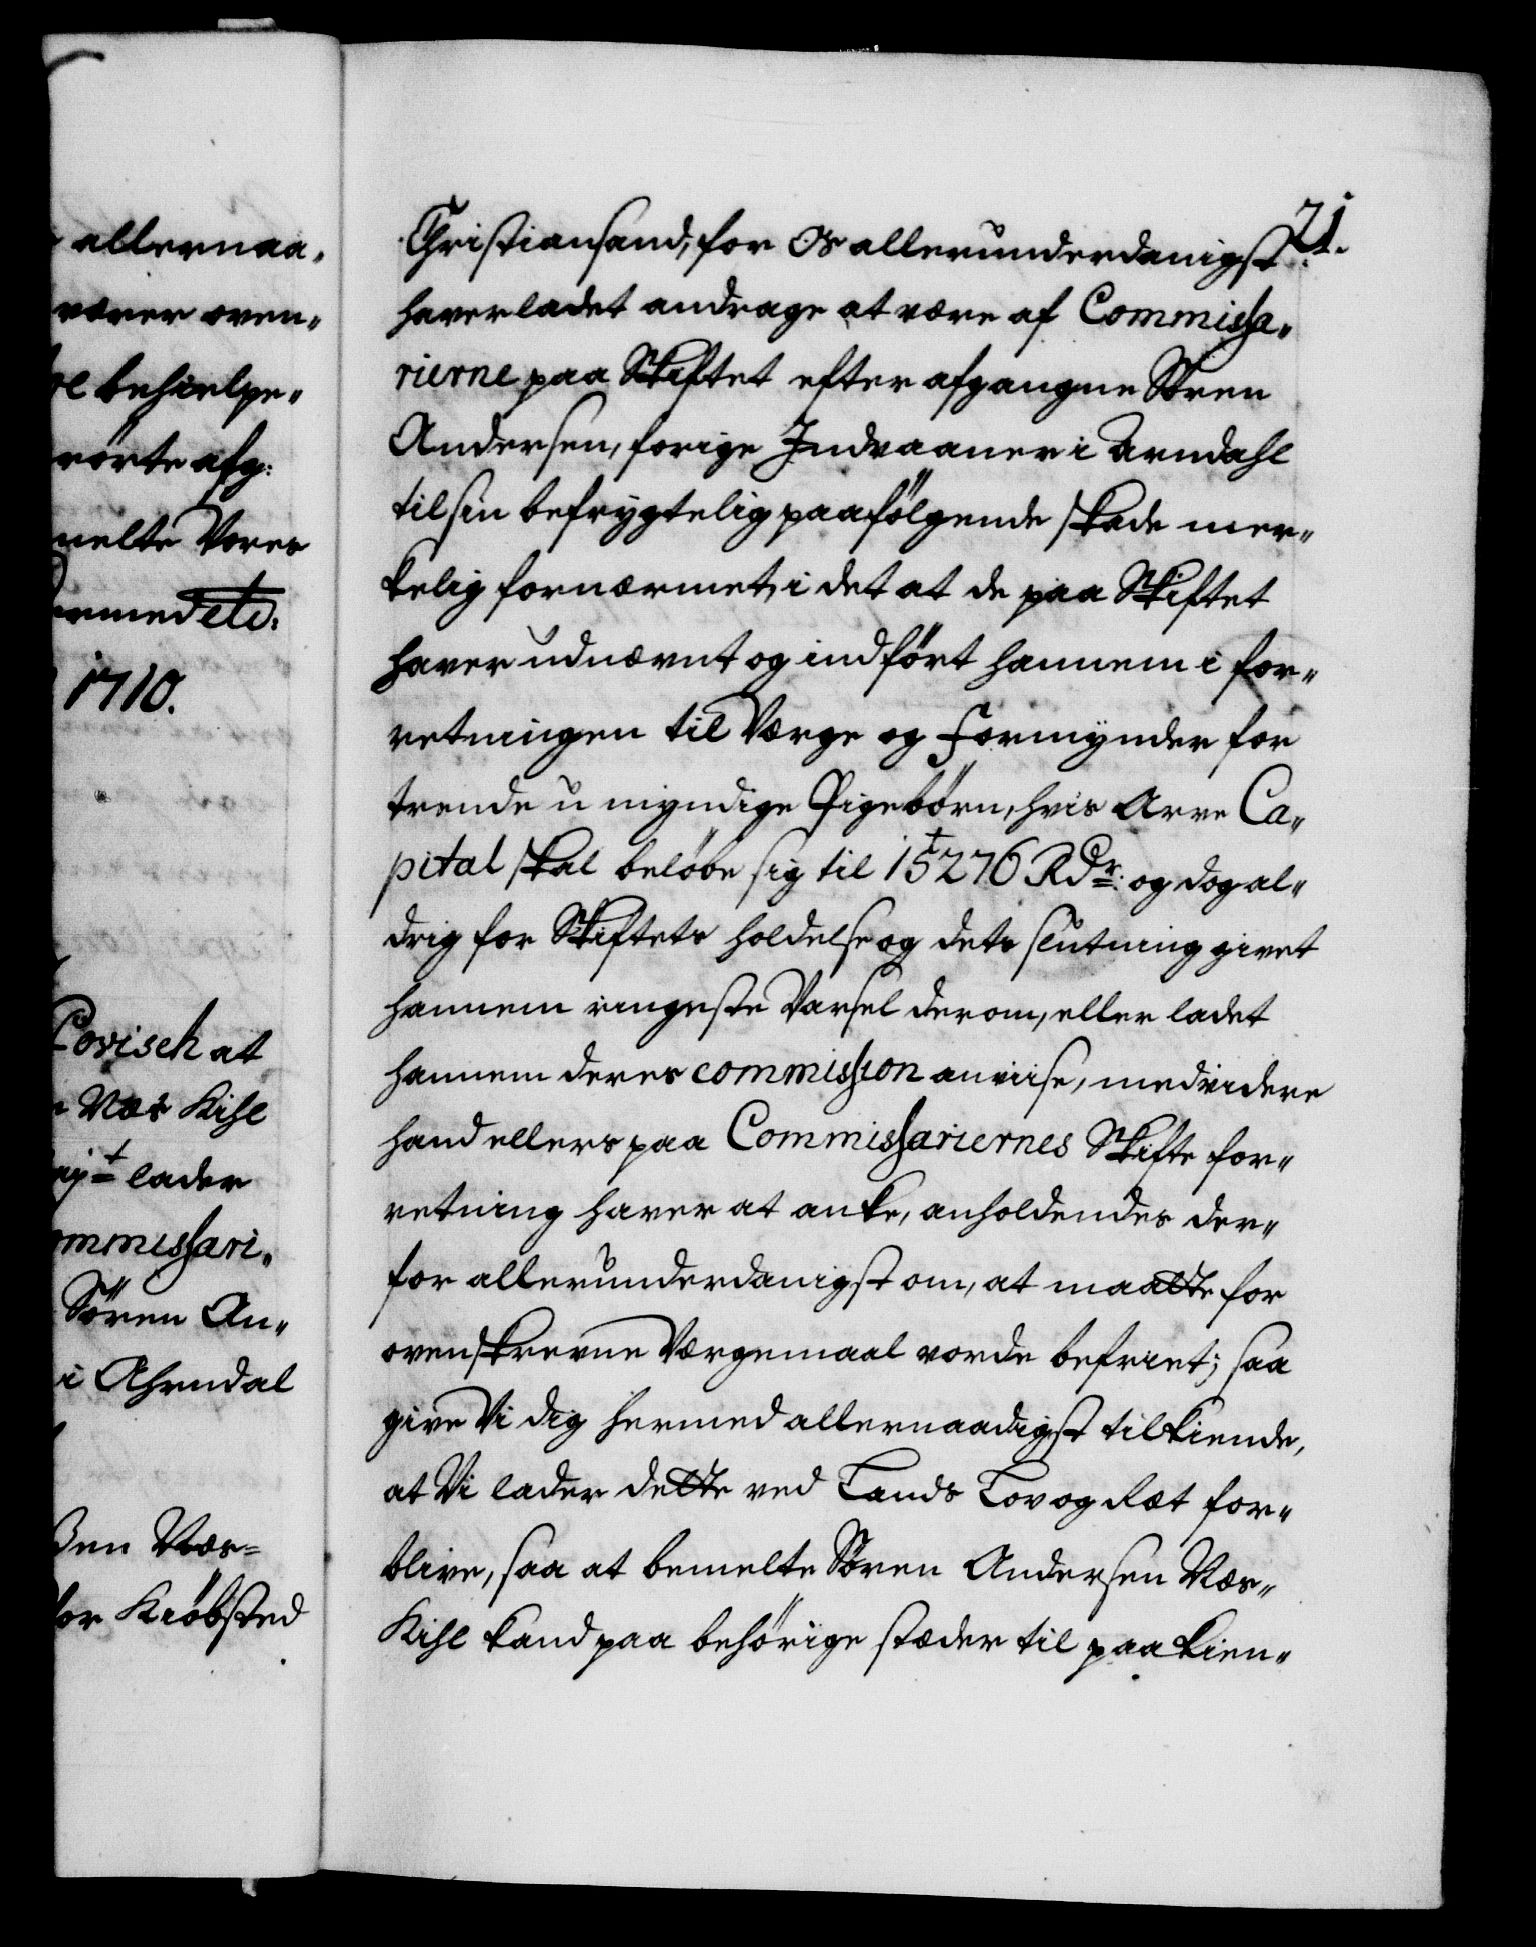 allernaa„
værer oven„
behielpe„
rørte afg:
melte Vores
ermed etc.
1710.
Covisch at
Næs Kihl
lader
ommissari„
Sören An„
i Ahrndal
Næs=
for Kiöbsted
21.
Christiansand, for Os allerunderdanigst
haver ladet andrage at være af Commissa„
rierne paa Skiftet efter afgangne Sören
Andersen, forige Indvaaner i Arndahl
til sin befrygtelig paafölgende skade mer„
kelig fornærmet, i det at de paa Skiftet
haver udnævnt og indfört hannem i for„
retningen til Værge og Formynder for
trende u myndige Pigebörn, hvis Arve Ca„
pital skal belöbe sig til 15276 Rdr: og dog al„
drig for Skiftets holdelse og dets slutning givet
hannem ringeste Varsel derom, eller ladet
hannem deres commission anviise, med videre
hand ellers paa Commissariernes Skifte for„
retning haver at anke, anholdendes der„
for allerunderdanigst om, at maatte for
ovenskrevne Værgemaal vorde befriet; saa
give Vi dig hermed allernaadigst tilkiende,
at Vi lader dette ved Lands Lov og Ræt for„
blive, saa at bemelte Sören Andersen Næs„
Kihl kand paa behörige stæder til paa kien„